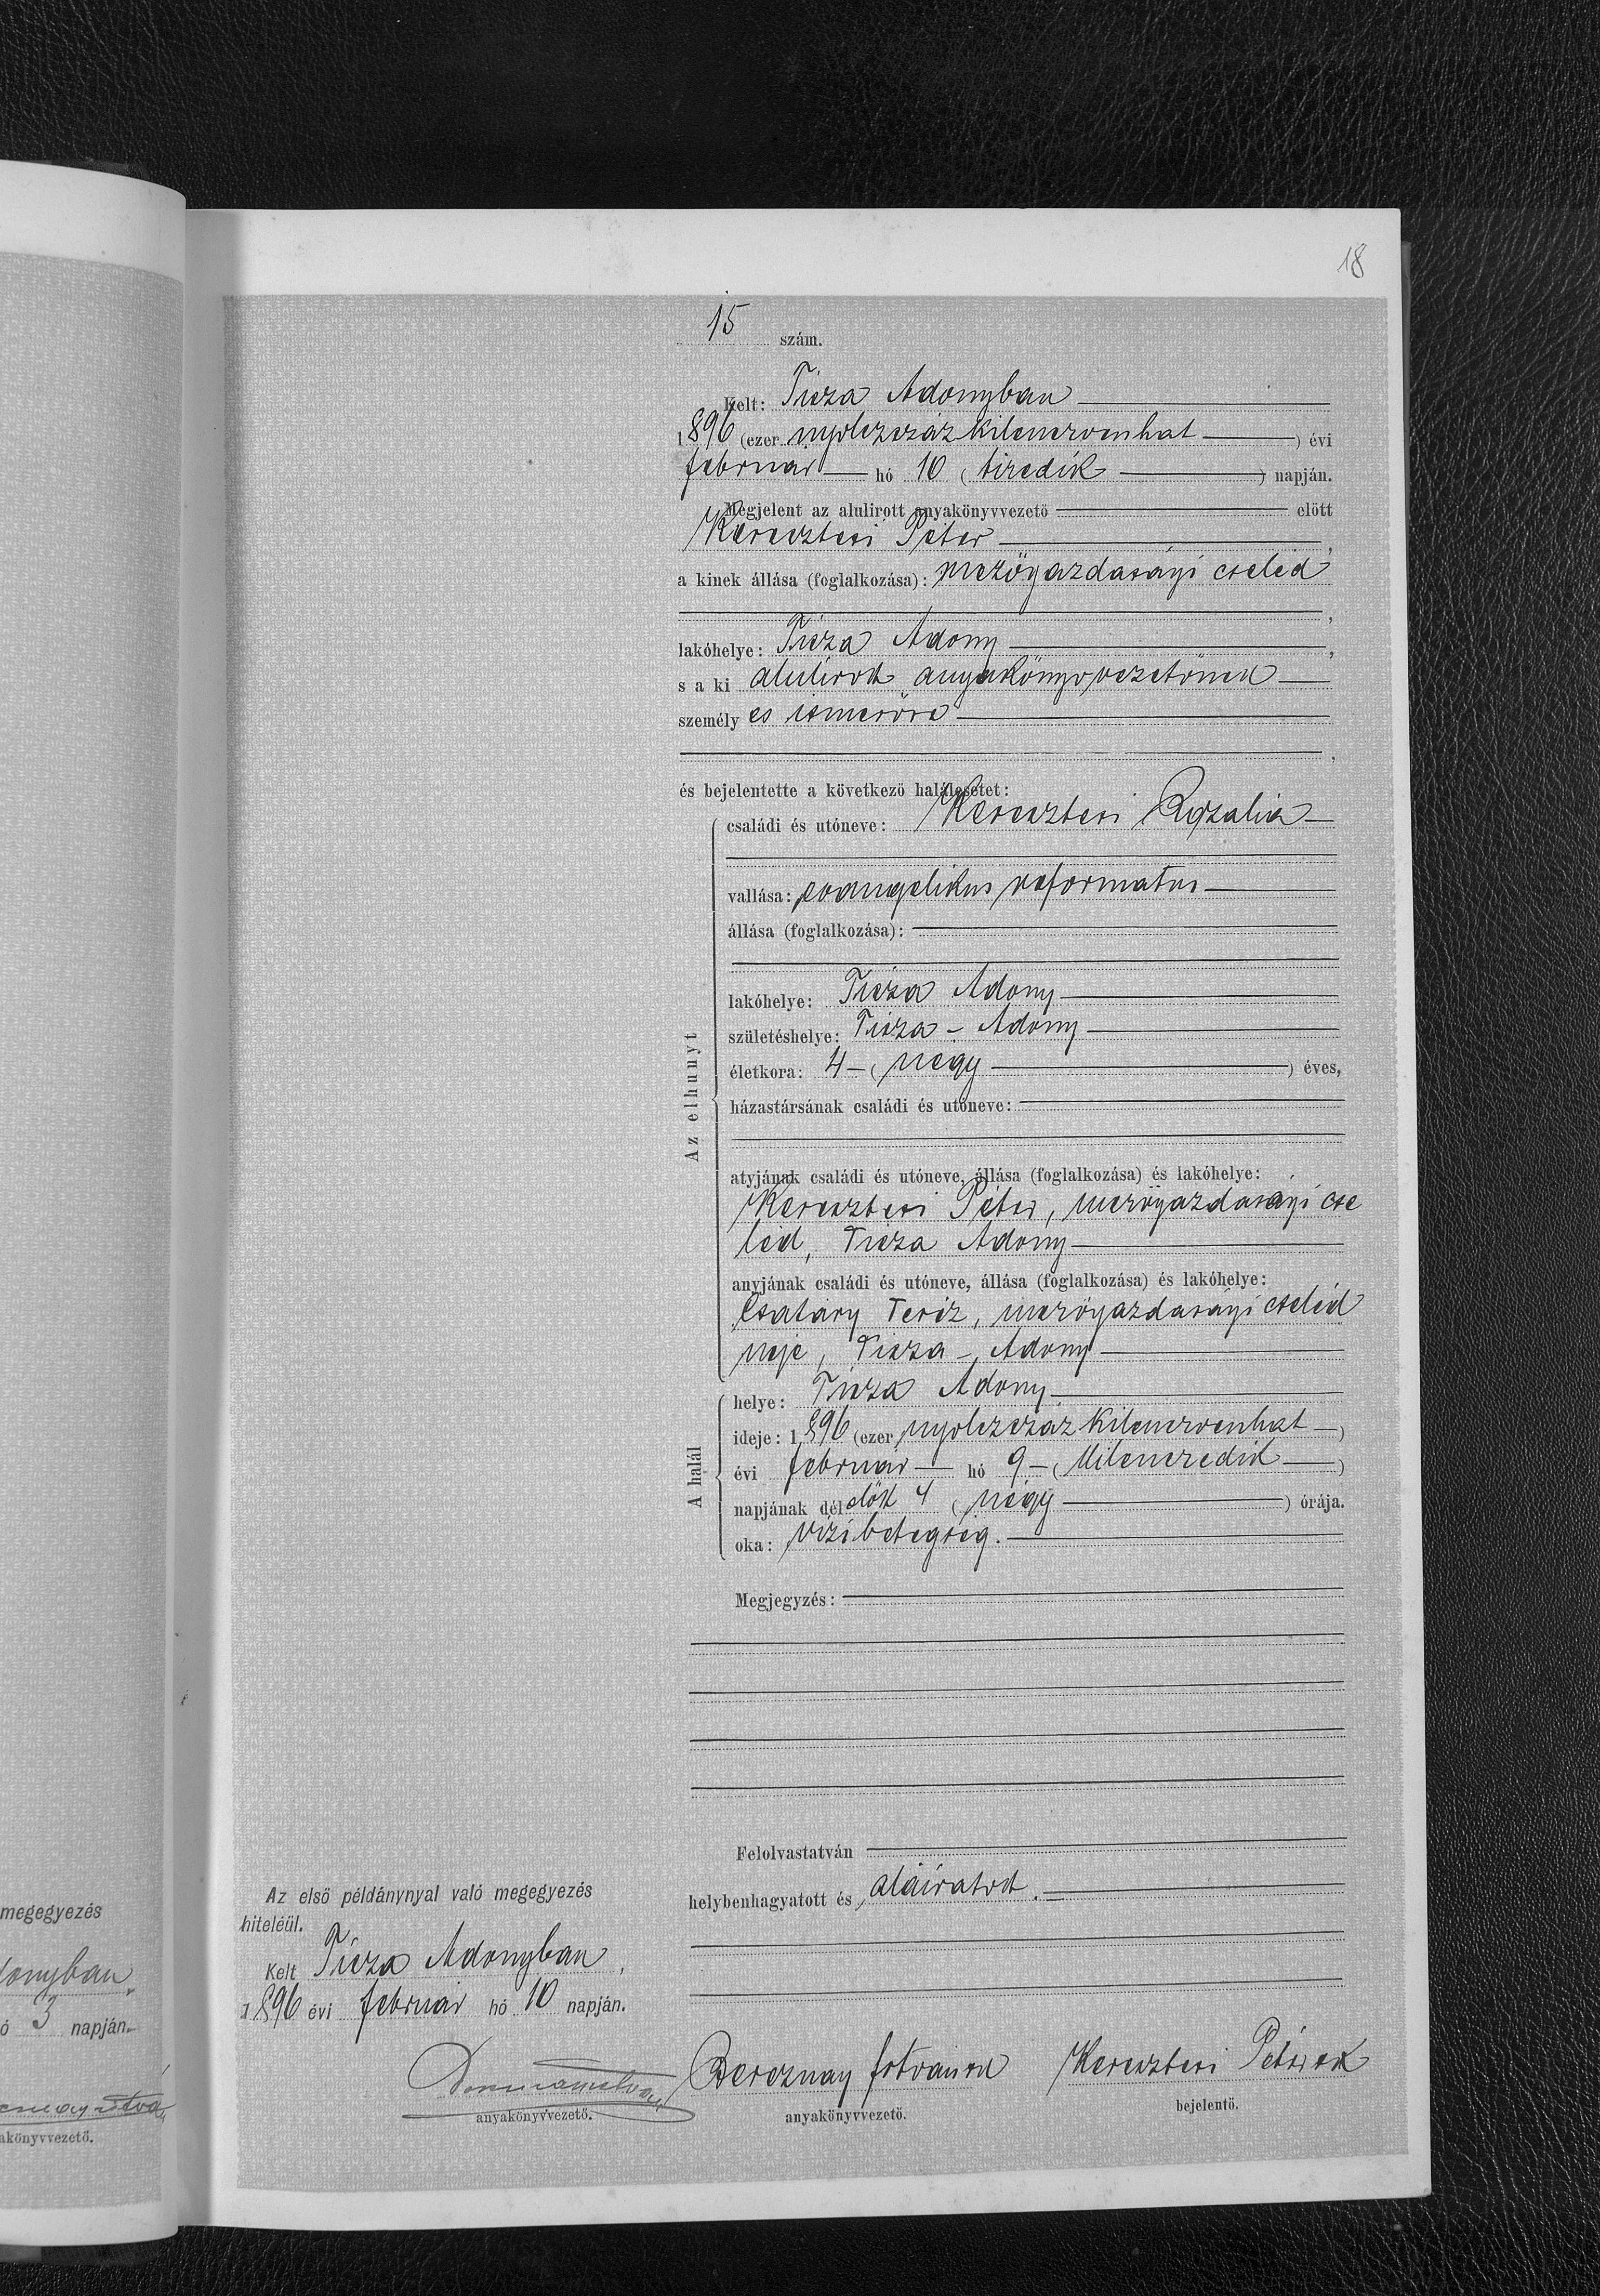 18
15 szám.
Kelt: Tisza Adonyban
1896 (ezer nyolczszáz kilenczvenhat) évi
február hó 10 (tizedik) napján.
Megjelent az alulirott anyakönyvvezető előtt
Keresztesi Péter,
a kinek állása (foglalkozása): mezőgazdasági cseléd
,
lakóhelye: Tisza Adony,
s a ki alulirott anyakönyvvezetőnek
személyes ismerőse
,
és bejelentette a következő halálesetet:
Az elhunyt
családi és utóneve: Keresztesi Rozalia
vallása: evangelikus reformatus
állása (foglalkozása):
lakóhelye: Tisza Adony
születéshelye: Tisza-Adony
életkora: 4 (négy) éves,
házastársának családi és utóneve:
atyjának családi és utóneve, állása (foglalkozása) és lakóhelye:
Keresztesi Péter, mezőgazdasági cse
léd, Tisza Adony
anyjának családi és utóneve, állása (foglalkozása) és lakóhelye:
Csatáry Teréz, mezőgazdasági cseléd
neje, Tisza-Adony
A halál
helye: Tisza Adony
ideje: 1896 (ezer nyolczszáz kilenczvenhat)
évi február hó 9 (kilenczedik)
napjának délelőtt 4 (négy) órája.
oka: vizibetegség.
Megjegyzés:
Felolvastatván
helybenhagyatott és aláiratott.
Az első példánynyal való megegyezés
hiteléül.
Kelt Tisza Adonyban,
1896 évi február hó 10 napján.
Bereznay István Keresztesi Péter
anyakönyvvezető. anyakönyvvezető. bejelentő.
megegyezés
donyban,
ó 3 napján.
akönyvvezető.